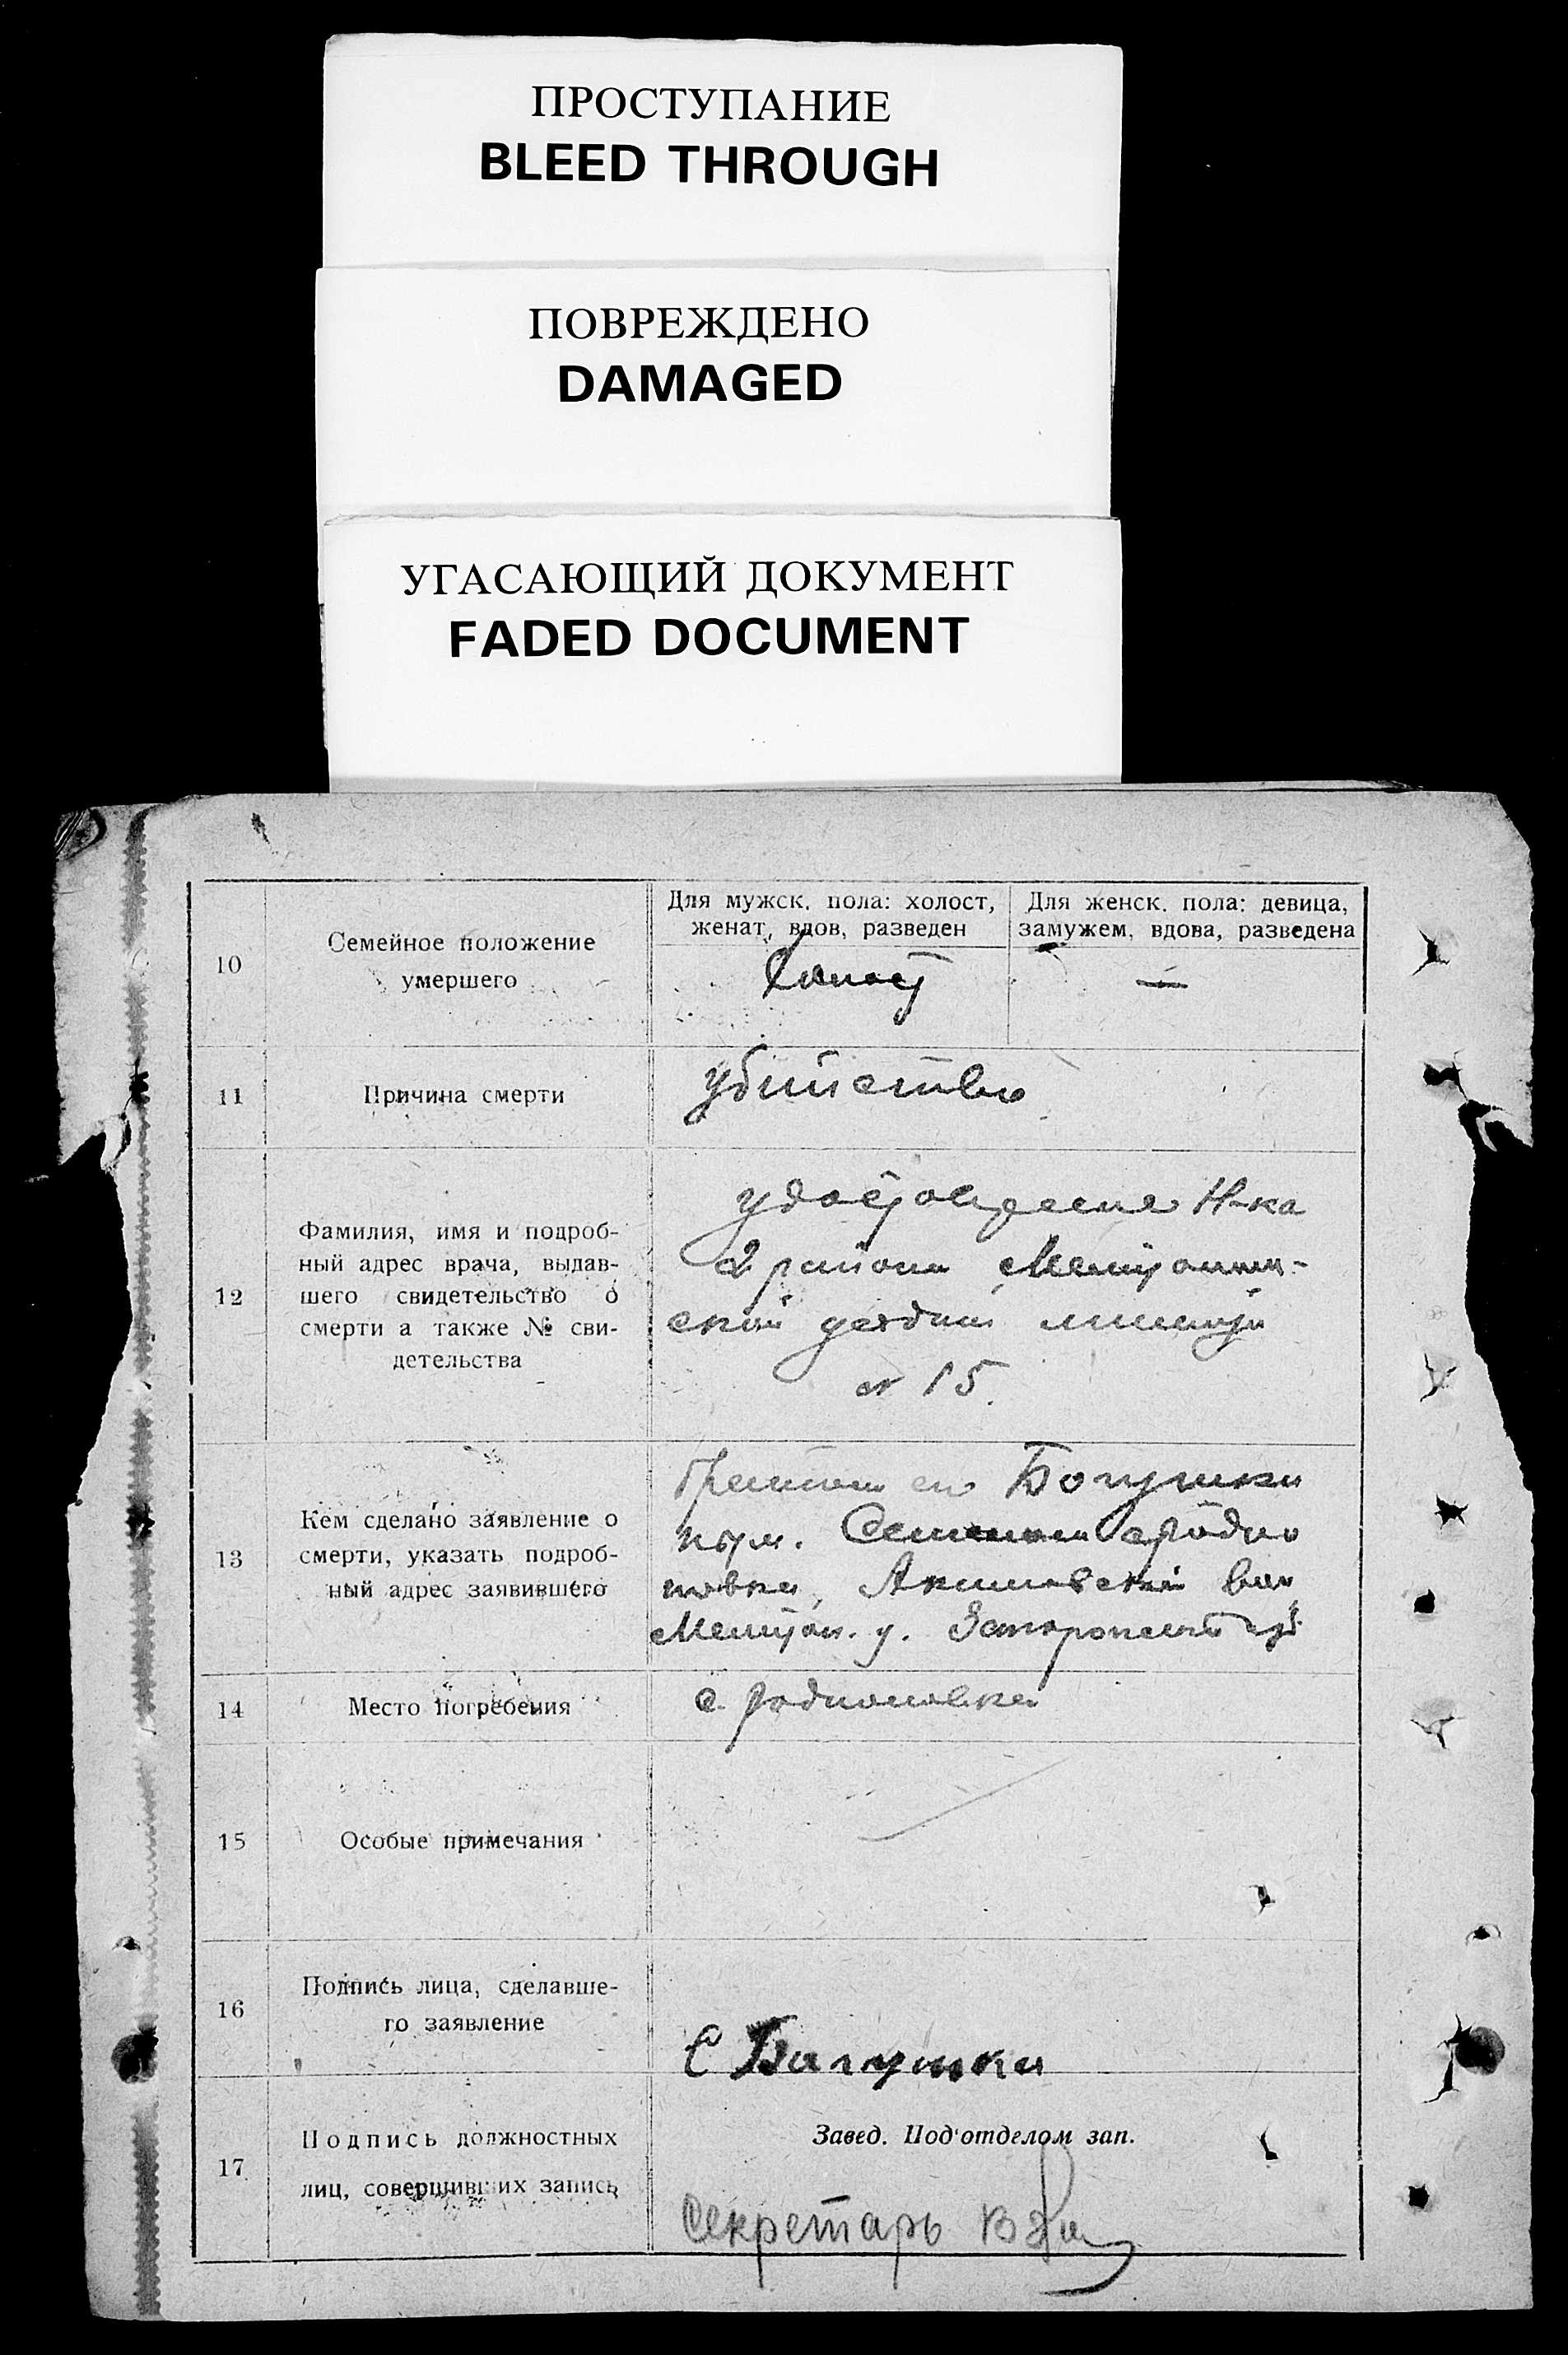 ПРОСТУПАНИЕ
BLEED THROUGH
ПОВРЕЖДЕНО
DAMAGED
УГАСАЮЩИЙ ДОКУМЕНТ
FADED DOCUMENT
10
Семейное положение
умершего
Для мужск. пола: холост,
женат, вдов, разведен
Для женск. пола: девица,
замужем, вдова, разведена
Холост
—
11
Причина смерти
убийство
12
Фамилия, имя и подроб-
ный адрес врача, выдав-
шего свидетельство о
смерти а также № сви-
детельства
удостоверение Н-ка
2 района Мелитополь-
ской милиции
№ 15.
13
Кем сделано заявление о
смерти, указать подроб-
ный адрес заявившего
братом его Богушки
Семеном с Родио
новка, Акимовской вол
Мелитоп. у. Запорожской губ.
14
Место погребения
с. Родионовка
15
Особые примечания
16
Подпись лица, сделавше-
го заявление
С Богушки
17
Подпись должностных
лиц, совершивших запись
Завед. Под'отделом зап.
Секретарь